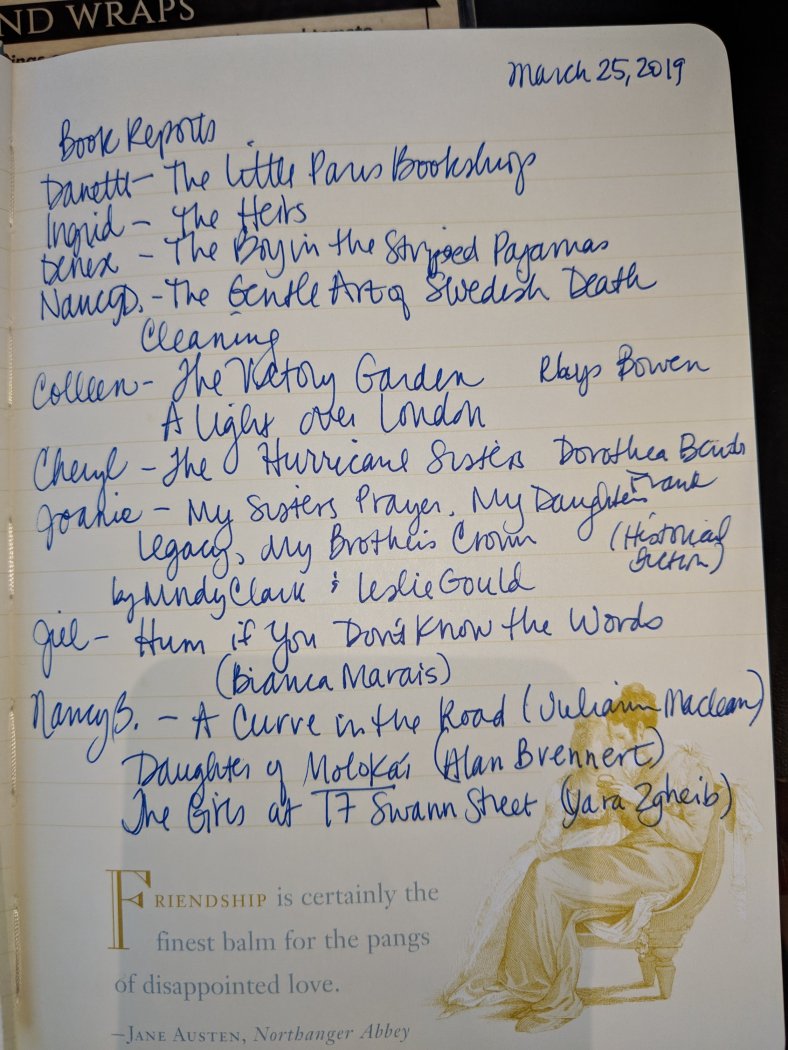 ND WRAPS
March 25, 2019
Book Reports
Danette - The Little Paris Bookshop
Ingrid - The Heirs
- The Boy in the Striped Pajamas
Nancy D. - The Gentle Art of Swedish Death
Cleaning
Colleen - The Victory Garden Rhys Bowen
A Light over London
Cheryl - The Hurricane Sisters Dorothea Benton
Frank
Joanie - My Sisters Prayer, My Daughters
Legacy, My Brothers Crown (Historical
fiction)
by Mindy Clark & Leslie Gould
Jill - Hum if You Don't Know the Words
(Bianca Marais)
Nancy B. - A Curve in the Road (Juliann Maclean)
Daughter of Moloka'i (Alan Brennert)
The Girls at 17 Swann Street (Yara Zgheib)
FRIENDSHIP is certainly the
finest balm for the pangs
of disappointed love.
—JANE AUSTEN, Northanger Abbey